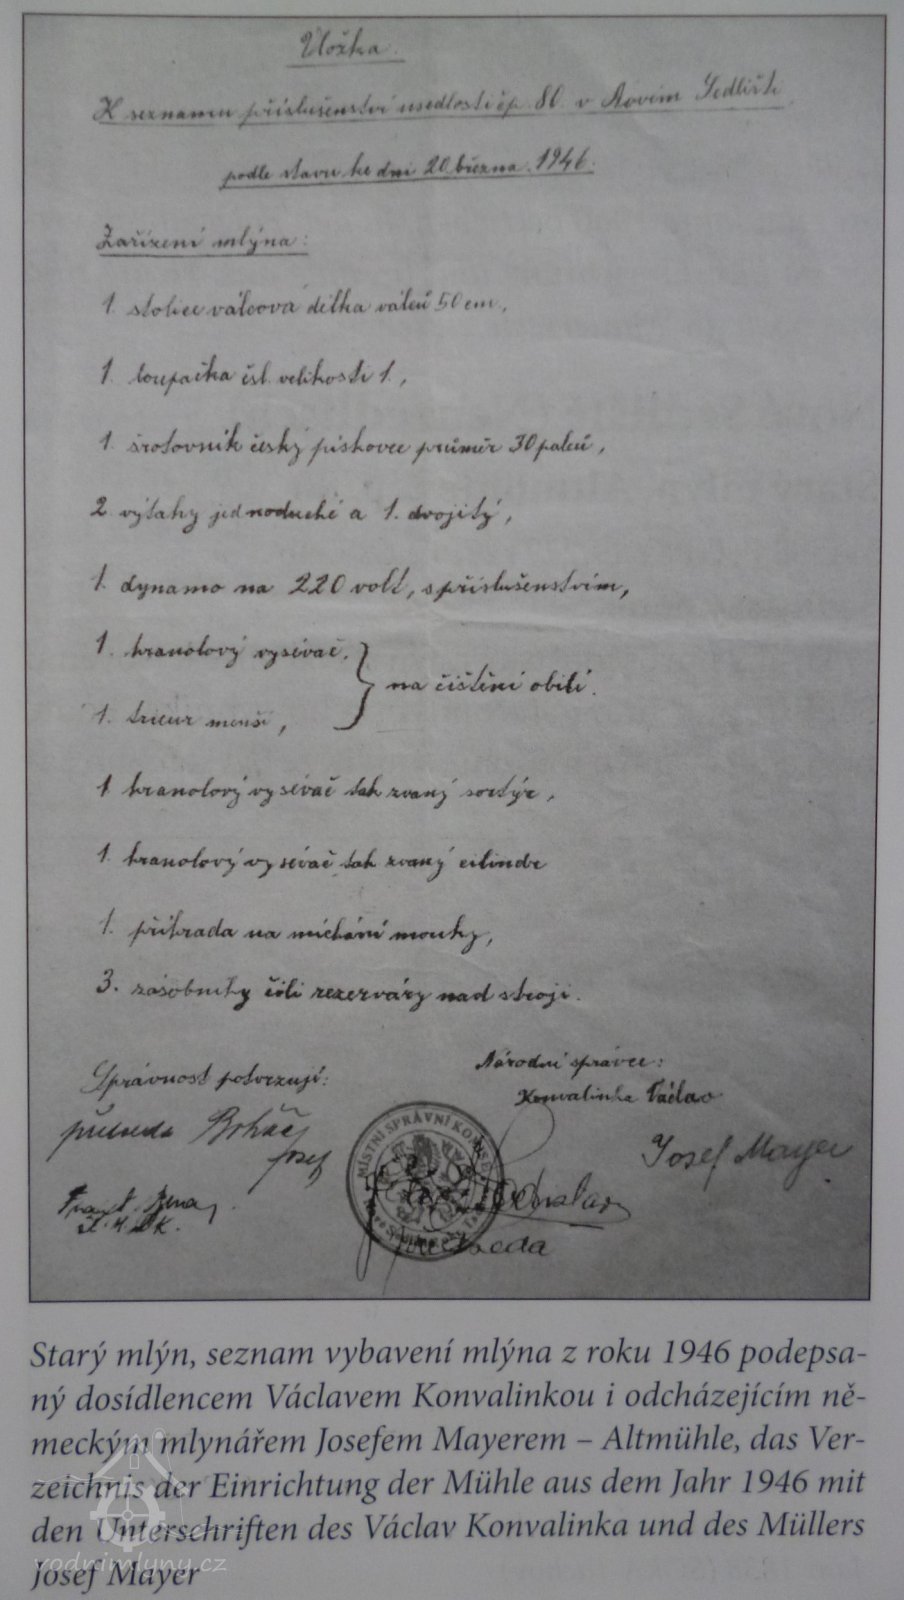 Vložka
K seznamu příslušenství usedlosti čp. 80. v Novém Sedlišti
podle stavu ke dni 20. března 1946.
Zařízení mlýna:
1. stolice válcová délka válců 50 cm,
1. loupačka čsl. velikosti 1.,
1. šrotovník český pískovec průměr 30 palců,
2 výtahy jednoduché a 1. dvojitý,
1. dynamo na 220 volt, s příslušenstvím,
1. hranolový vysévač,
} na čištění obilí.
1. trieur menší,
1 hranolový vysévač tak zvaný sortýr,
1. hranolový vysévač tak zvaný cilindr
1. přihrada na míchání mouky,
3. zásobníky čili rezerváry nad stroji.
Správnost potvrzují:
Národní správce:
Konvalinka Václav
předseda
Josef
Josef Mayer
MÍSTNÍ SPRÁVNÍ KOMISE
předseda
Starý mlýn, seznam vybavení mlýna z roku 1946 podepsa-
ný dosídlencem Václavem Konvalinkou i odcházejícím ně-
meckým mlynářem Josefem Mayerem – Altmühle, das Ver-
zeichnis der Einrichtung der Mühle aus dem Jahr 1946 mit
den Unterschriften des Václav Konvalinka und des Müllers
Josef Mayer
vodnimlyny.cz